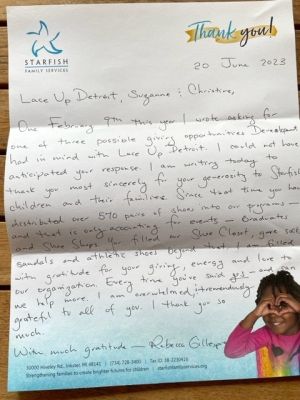 STARFISH
FAMILY SERVICES
Thank you!
20 June 2023
Lace Up Detroit, Suzanne & Christine,
One February 9th this year I wrote asking for
one of three possible giving opportunities Development
had in mind with Lace Up Detroit. I could not have
anticipated your response. I am writing today to
thank you most sincerely for your generosity to Starfish
children and their families. Since that time you have
distributed over 570 pairs of shoes into our programs —
and that is only accounting for events — Graduates
and Shoe Shops. You filled our Shoe Closet, gave socks,
sandals and athletic shoes beyond that. I am filled
with gratitude for your giving, energy and love to
our organization. Every time you've said yes — and can
we help more. I am overwhelmed, tremendously
grateful to all of you. I thank you so
much.
With much gratitude — Rebecca Gillespie
30000 Hiveley Rd., Inkster, MI 48141 | (734) 728-3400 | Tax ID: 38-2230426
Strengthening families to create brighter futures for children | starfishfamilyservices.org